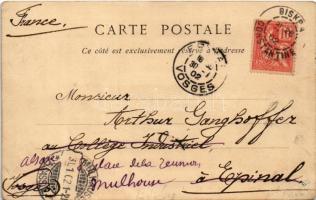 France.
CARTE POSTALE
Ce côté est exclusivement réservé à l'adresse
BISKRA
CONSTANTINE
VOSGES
Monsieur
Arthur Ganghoffer
au Collège Industriel
place de la Reunion
Mulhouse
à Epinal
Vosges